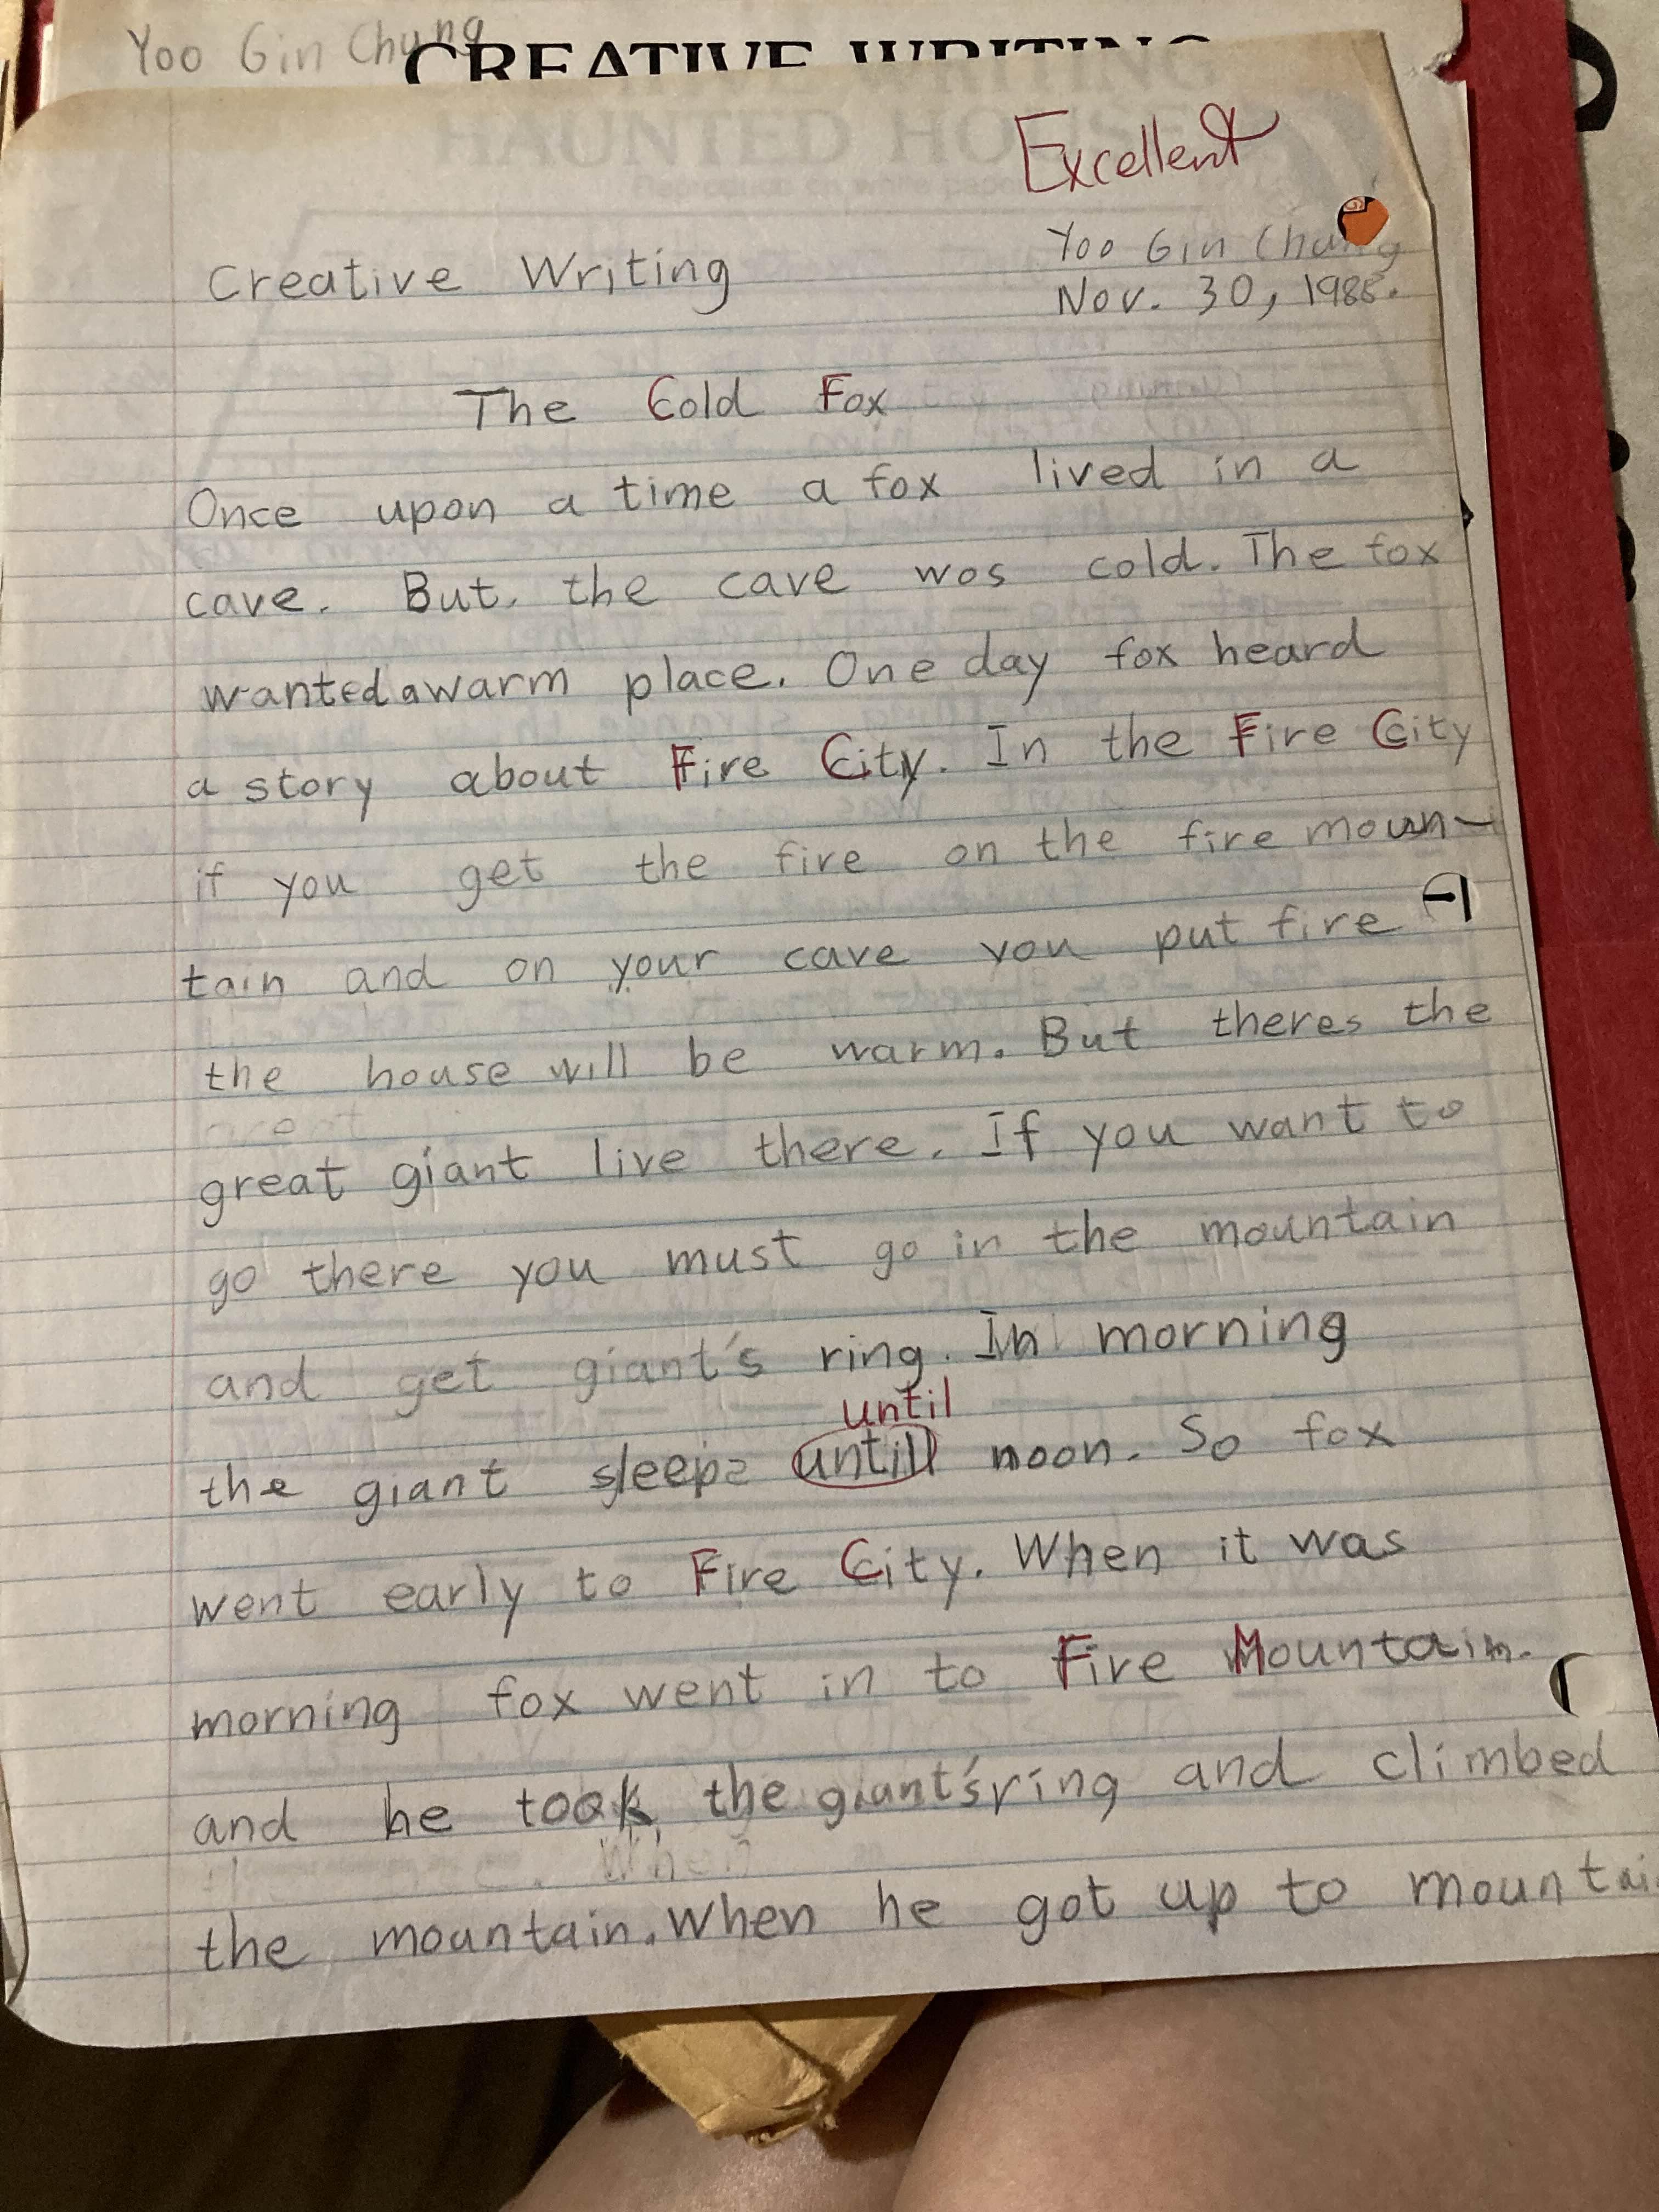 Yoo Gin Chung
CREATIVE WRITING
HAUNTED HOUSE
Excellent
Yoo Gin Chung
Creative Writing
Nov. 30, 1985.
The Cold Fox
Once upon a time a fox lived in a
cave. But. the cave wos cold. The fox
wanted a warm place. One day fox heard
a story about Fire City. In the Fire City
if you get the fire on the fire moun-
tain and on your cave you put fire
the house will be warm. But theres the
great
great giant live there. If you want to
go there you must go in the mountain
and get giant's ring. In morning
until
the giant sleeps untill noon. So fox
went early to Fire City. When it was
morning fox went in to Fire Mountain.
and he took the giant's ring and climbed
When
the mountain. When he got up to mountai